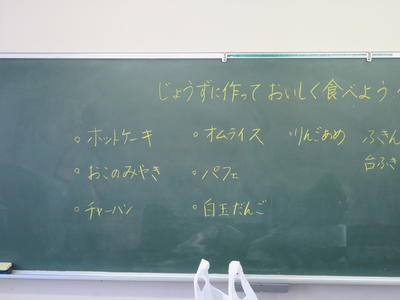 じょうずに作って おいしく食べよう
ホットケーキ
おこのみやき
チャーハン
オムライス
パフェ
白玉だんご
りんごあめ
ふきん
台ふき